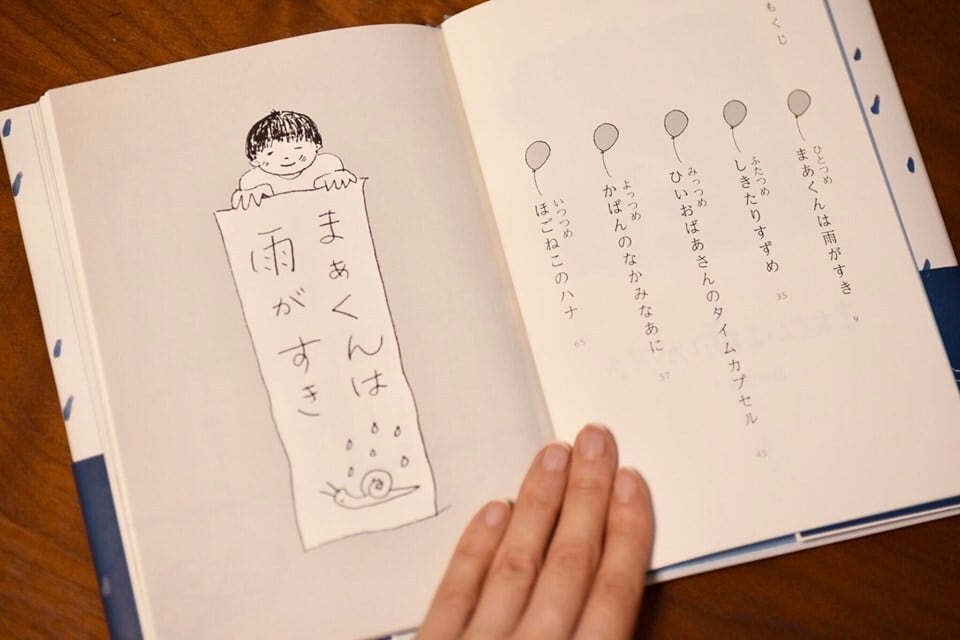 もくじ
ひとつめ
まあくんは雨がすき 9
ふたつめ
しきたりすずめ 35
みっつめ
ひいおばあさんのタイムカプセル 45
よっつめ
かばんのなかみなあに 57
いつつめ
ほごねこのハナ 65
まあくんは
雨がすき